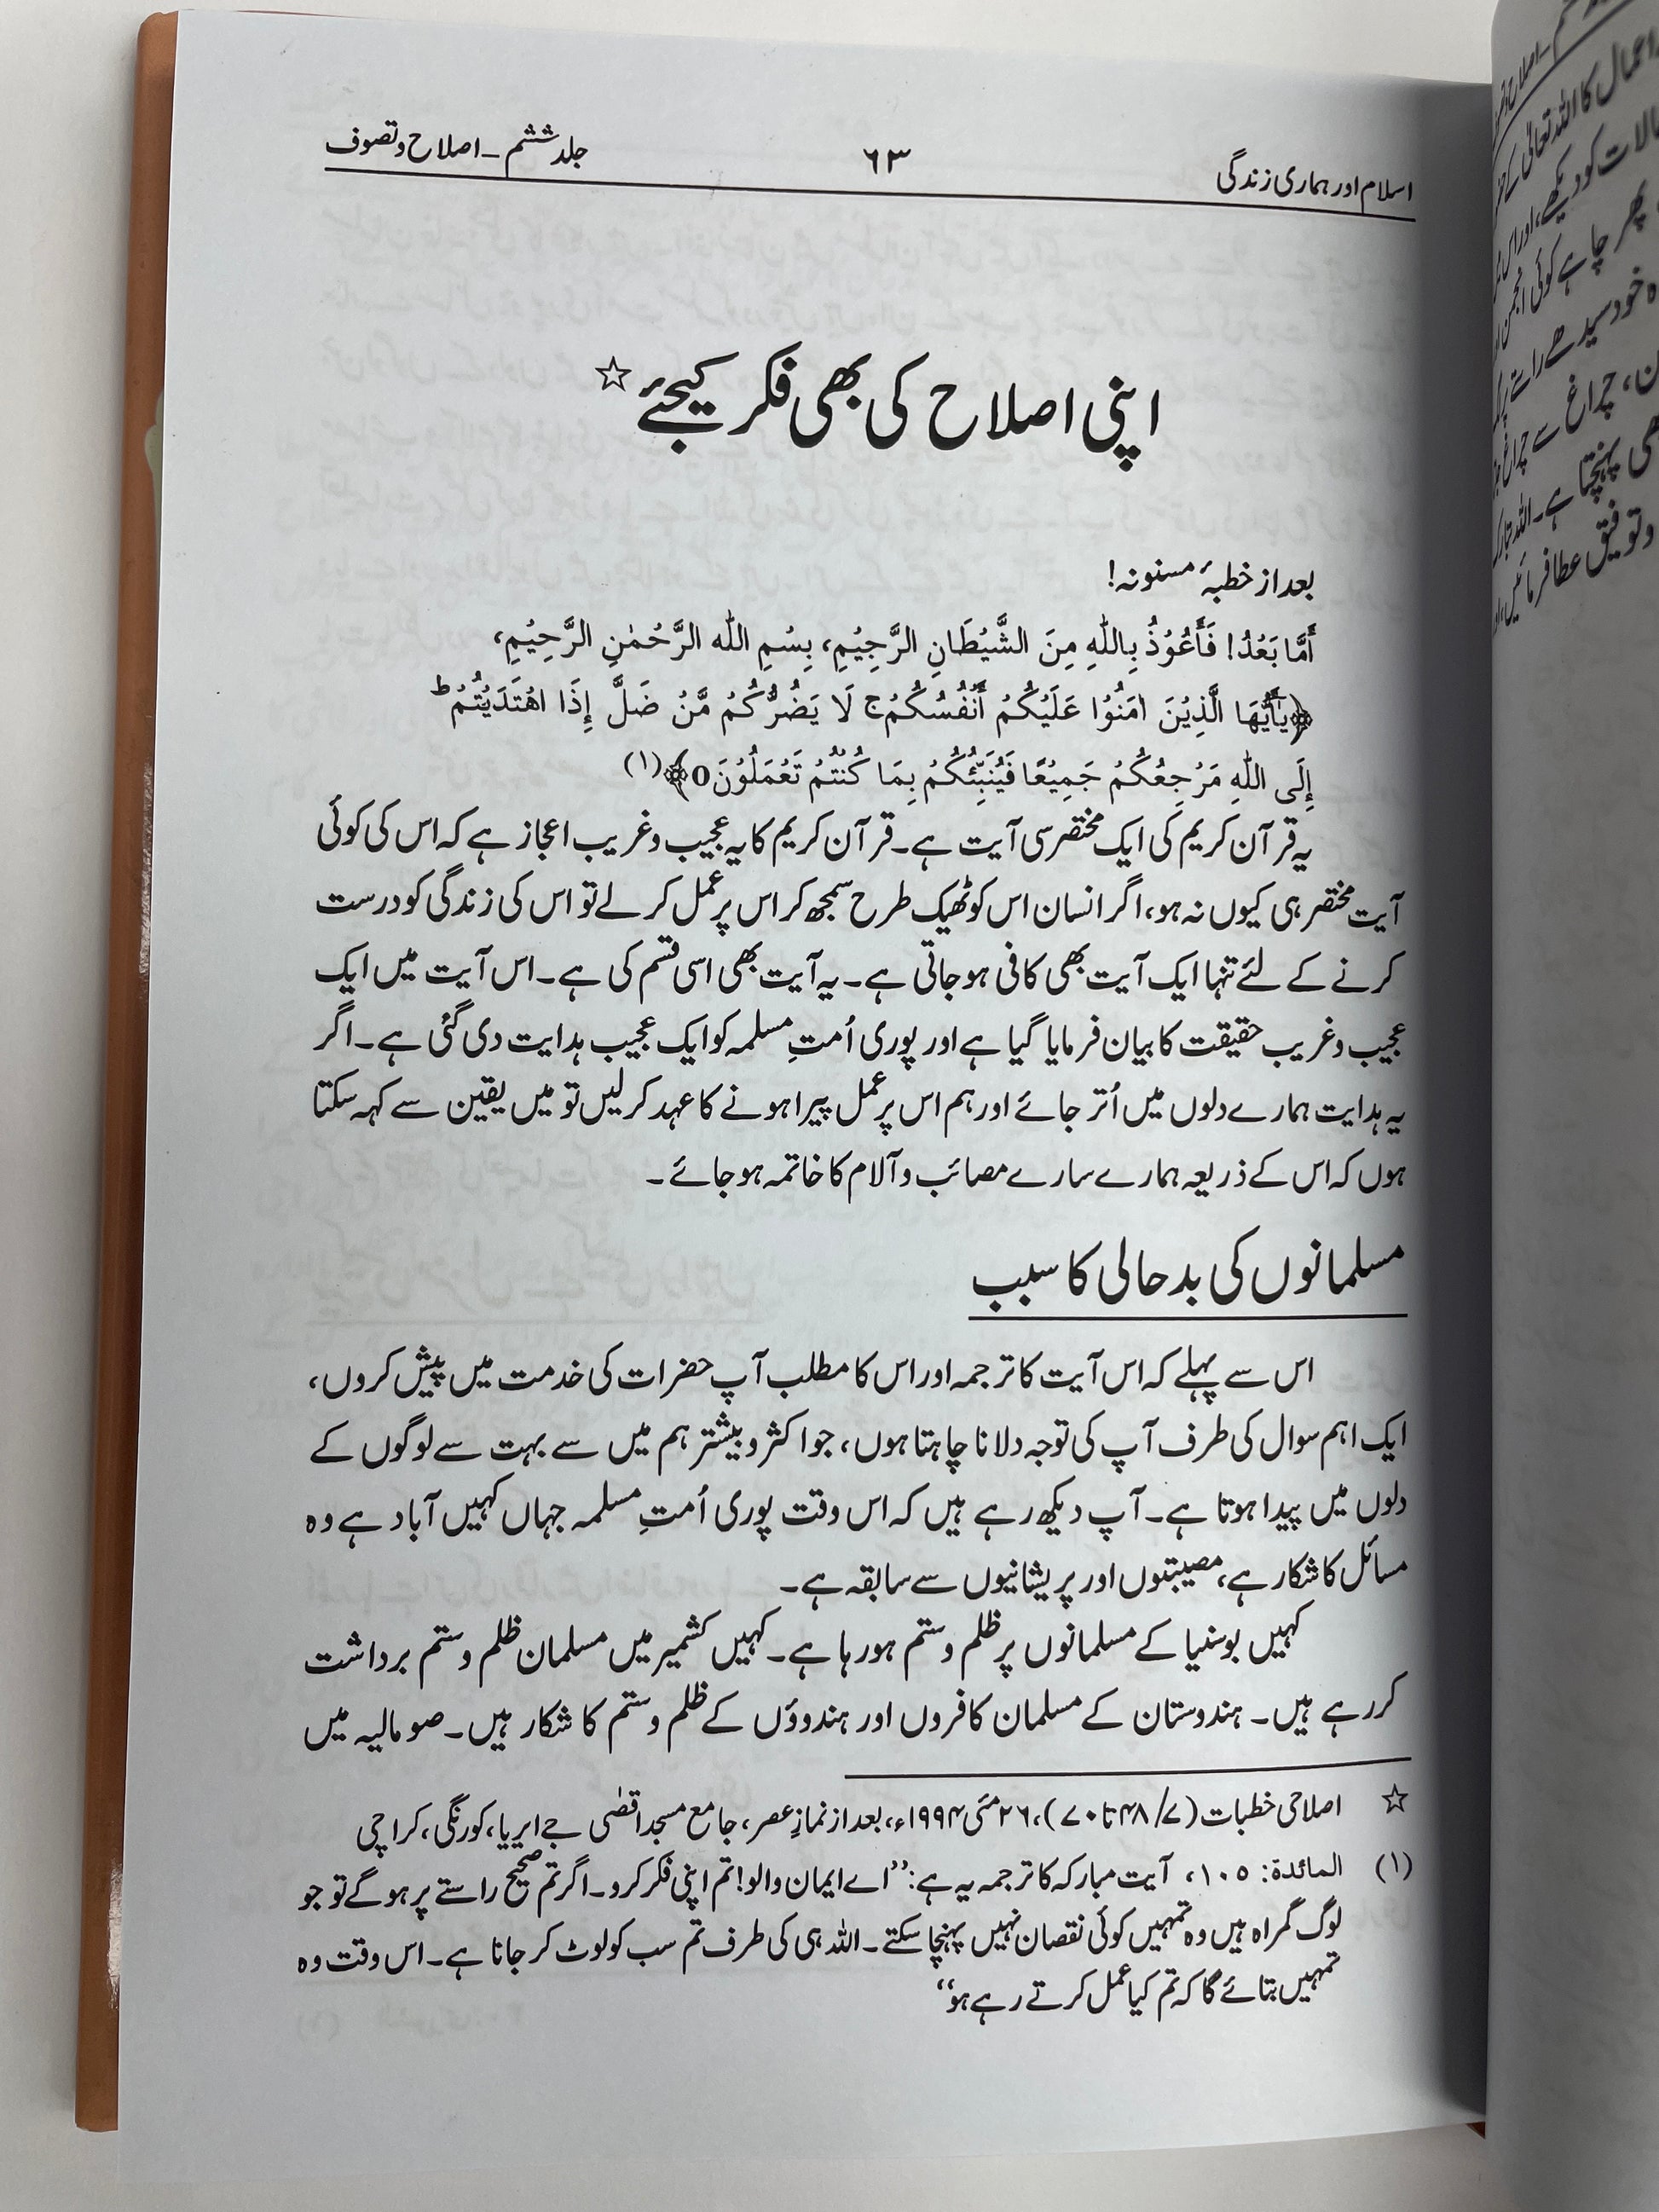 اسلام اور ہماری زندگی ۶۳ جلد ششم ـ اصلاح و تصوف
اپنی اصلاح کی بھی فکر کیجئے ☆
بعد از خطبۂ مسنونہ!
أَمَّا بَعْدُ! فَأَعُوْذُ بِاللّٰهِ مِنَ الشَّيْطَانِ الرَّجِيْمِ، بِسْمِ اللّٰه الرَّحْمٰنِ الرَّحِيْمِ،
﴿يٰٓأَيُّهَا الَّذِيْنَ اٰمَنُوْا عَلَيْكُمْ أَنْفُسَكُمْ ج لَا يَضُرُّكُمْ مَّنْ ضَلَّ إِذَا اهْتَدَيْتُمْ ط
إِلَى اللّٰهِ مَرْجِعُكُمْ جَمِيْعًا فَيُنَبِّئُكُمْ بِمَا كُنْتُمْ تَعْمَلُوْنَ0﴾ (۱)
یہ قرآن کریم کی ایک مختصر سی آیت ہے۔ قرآن کریم کا یہ عجیب و غریب اعجاز ہے کہ اس کی کوئی
آیت مختصر ہی کیوں نہ ہو، اگر انسان اس کو ٹھیک طرح سمجھ کر اس پر عمل کر لے تو اس کی زندگی کو درست
کرنے کے لئے تنہا ایک آیت بھی کافی ہو جاتی ہے۔ یہ آیت بھی اسی قسم کی ہے۔ اس آیت میں ایک
عجیب و غریب حقیقت کا بیان فرمایا گیا ہے اور پوری اُمتِ مسلمہ کو ایک عجیب ہدایت دی گئی ہے۔ اگر
یہ ہدایت ہمارے دلوں میں اُتر جائے اور ہم اس پر عمل پیرا ہونے کا عہد کرلیں تو میں یقین سے کہہ سکتا
ہوں کہ اس کے ذریعہ ہمارے سارے مصائب و آلام کا خاتمہ ہو جائے۔
مسلمانوں کی بدحالی کا سبب
اس سے پہلے کہ اس آیت کا ترجمہ اور اس کا مطلب آپ حضرات کی خدمت میں پیش کروں،
ایک اہم سوال کی طرف آپ کی توجہ دلانا چاہتا ہوں، جو اکثر و بیشتر ہم میں سے بہت سے لوگوں کے
دلوں میں پیدا ہوتا ہے۔ آپ دیکھ رہے ہیں کہ اس وقت پوری اُمتِ مسلمہ جہاں کہیں آباد ہے وہ
مسائل کا شکار ہے، مصیبتوں اور پریشانیوں سے سابقہ ہے۔
کہیں بوسنیا کے مسلمانوں پر ظلم و ستم ہو رہا ہے۔ کہیں کشمیر میں مسلمان ظلم و ستم برداشت
کر رہے ہیں۔ ہندوستان کے مسلمان کافروں اور ہندوؤں کے ظلم و ستم کا شکار ہیں۔ صومالیہ میں
☆ اصلاحی خطبات (۷/ ۴۸ تا ۷۰)، ۲۶ مئی ۱۹۹۴ء، بعد از نمازِ عصر، جامع مسجد اقصٰی جے ایریا، کورنگی، کراچی
(۱) المائدة: ۱۰۵، آیت مبارکہ کا ترجمہ یہ ہے: ’’اے ایمان والو! تم اپنی فکر کرو۔ اگر تم صحیح راستے پر ہو گے تو جو
لوگ گمراہ ہیں وہ تمہیں کوئی نقصان نہیں پہنچا سکتے۔ اللہ ہی کی طرف تم سب کو لوٹ کر جانا ہے۔ اس وقت وہ
تمہیں بتائے گا کہ تم کیا عمل کرتے رہے ہو‘‘